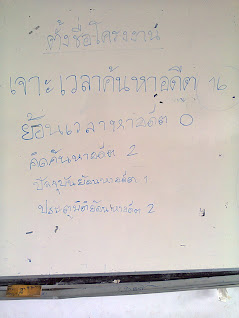 ตั้งชื่อโครงงาน
เจาะเวลาค้นหาอดีต 16
ย้อนเวลาหาอดีต 0
คิดค้นหาอดีต 2
ปัจจุบันย้อนหาอดีต 1
ประตูมิติย้อนหาอดีต 2